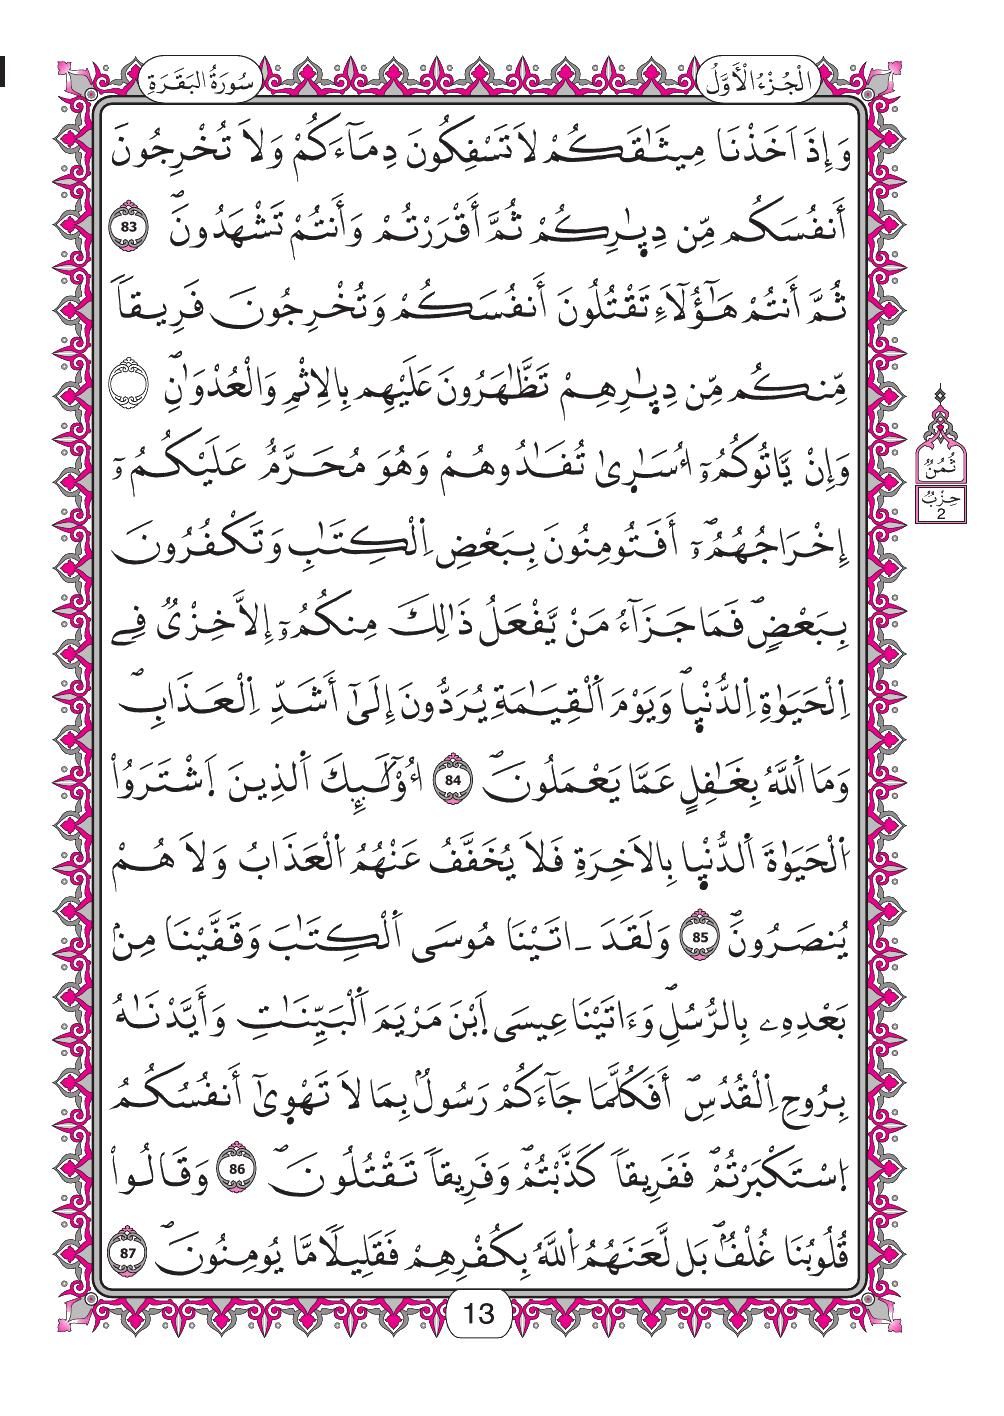 الْجُزْءُ الْأَوَّلُ
سُورَةُ الْبَقَرَةِ
وَإِذَ اَخَذْنَا مِيثَٰقَكُمْ لَا تَسْفِكُونَ دِمَآءَكُمْ وَلَا تُخْرِجُونَ
أَنفُسَكُم مِّن دِيٰ۪رِكُمْ ثُمَّ أَقْرَرْتُمْ وَأَنتُمْ تَشْهَدُونَۖ 83
ثُمَّ أَنتُمْ هَٰٓؤُلَآءِ تَقْتُلُونَ أَنفُسَكُمْ وَتُخْرِجُونَ فَرِيقاٗ
مِّنكُم مِّن دِيٰ۪رِهِمْ تَظَّٰهَرُونَ عَلَيْهِم بِالِاثْمِ وَالْعُدْوَٰنِۖ
وَإِنْ يَّاتُوكُمُۥٓ أُسَٰر۪يٰ تُفَٰدُوهُمْ وَهُوَ مُحَرَّمٌ عَلَيْكُمُۥٓ
إِخْرَاجُهُمُۥٓۖ أَفَتُومِنُونَ بِبَعْضِ اِ۬لْكِتَٰبِ وَتَكْفُرُونَ
بِبَعْضٖۖ فَمَا جَزَآءُ مَنْ يَّفْعَلُ ذَٰلِكَ مِنكُمُۥٓ إِلَّا خِزْيٞ فِے
اِ۬لْحَيَوٰةِ اِ۬لدُّنْي۪اۖ وَيَوْمَ اَ۬لْقِيَٰمَةِ يُرَدُّونَ إِلَيٰٓ أَشَدِّ اِ۬لْعَذَابِۖ
وَمَا اَ۬للَّهُ بِغَٰفِلٍ عَمَّا يَعْمَلُونَۖ 84 أُوْلَٰٓئِكَ اَ۬لذِينَ اَ۪شْتَرَوُاْ
اُ۬لْحَيَوٰةَ اَ۬لدُّنْي۪ا بِالَاخِرَةِ فَلَا يُخَفَّفُ عَنْهُمُ اُ۬لْعَذَابُ وَلَا هُمْ
يُنصَرُونَۖ 85 وَلَقَدَ ـاتَيْنَا مُوسَى اَ۬لْكِتَٰبَ وَقَفَّيْنَا مِنۢ
بَعْدِهِۦ بِالرُّسُلِۖ وَءَاتَيْنَا عِيسَى اَ۪بْنَ مَرْيَمَ اَ۬لْبَيِّنَٰتِ وَأَيَّدْنَٰهُ
بِرُوحِ اِ۬لْقُدُسِۖ أَفَكُلَّمَا جَآءَكُمْ رَسُولُۢ بِمَا لَا تَهْو۪يٰٓ أَنفُسُكُمُ
اُ۪سْتَكْبَرْتُمْۖ فَفَرِيقاٗ كَذَّبْتُمْۖ وَفَرِيقاٗ تَقْتُلُونَۖ 86 وَقَالُواْ
قُلُوبُنَا غُلْفُۢۖ بَل لَّعَنَهُمُ اُ۬للَّهُ بِكُفْرِهِمْ فَقَلِيلاٗ مَّا يُومِنُونَۖ 87
ثُمُنُ
حِزْبُ
2
13